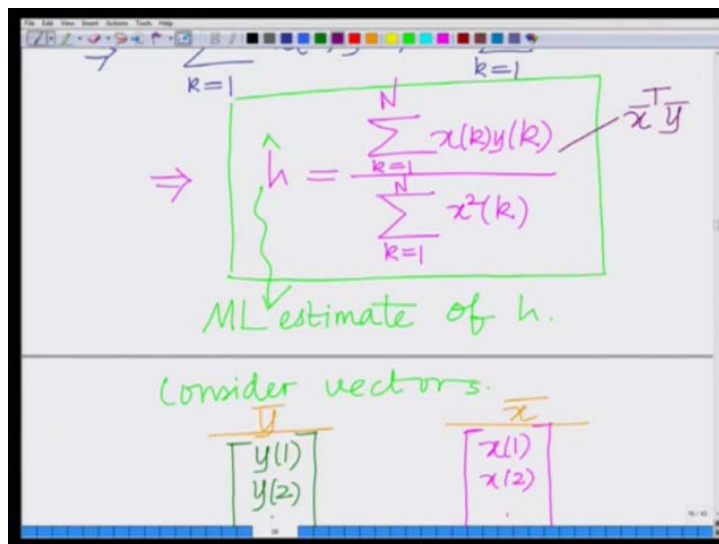 File Edit View Insert Actions Tools Help
k=1 k=1
⇒ ĥ = \frac{\sum_{k=1}^{N} x(k)y(k)}{\sum_{k=1}^{N} x²(k)} x̄ᵀȳ
ML estimate of h.
Consider vectors.
ȳ x̄
y(1) x(1)
y(2) x(2)